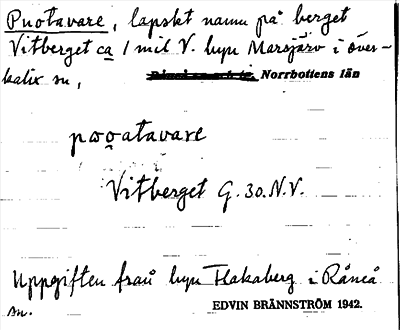 Puotavare, lapskt namn på berget
Vitberget ca 1 mil V. byn Marsjärv i över-
kalix sn,
Norrbottens län
pωatavare
Vitberget G. 30. N.V.
Uppgiften från byn Flakaberg i Råneå
sn.
EDVIN BRÄNNSTRÖM 1942.